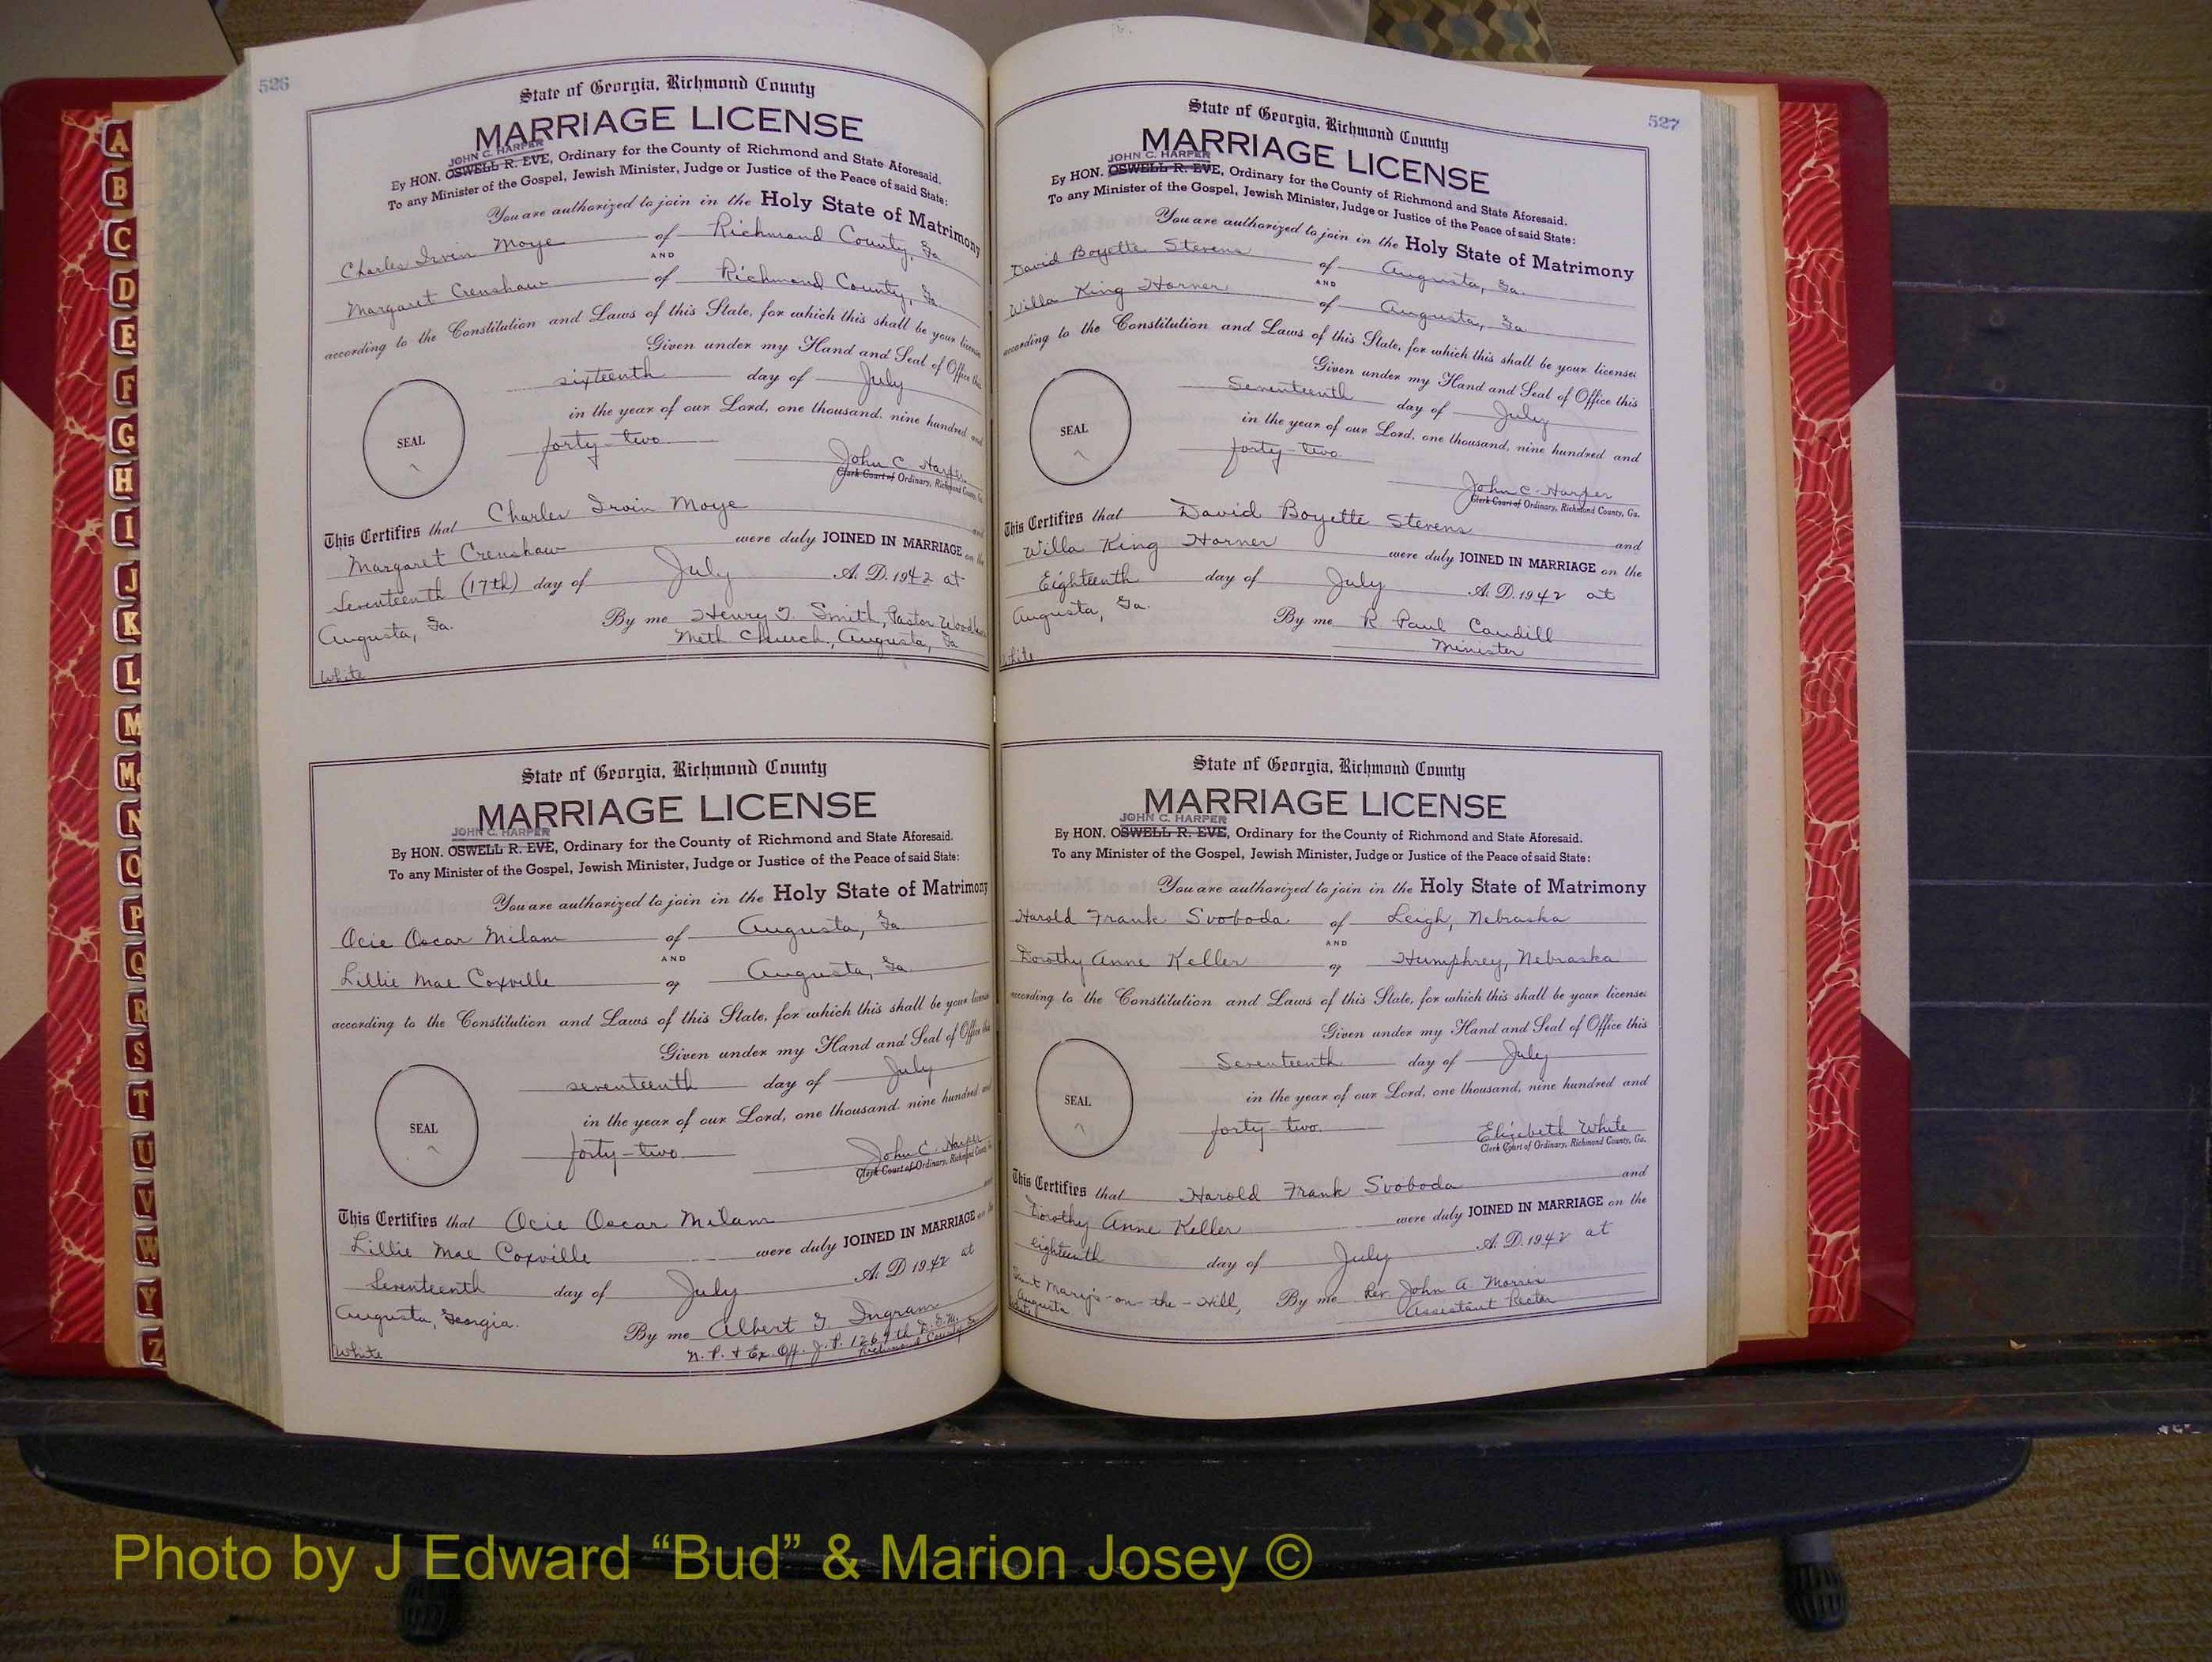 526
State of Georgia, Richmond County
MARRIAGE LICENSE
JOHN C. HARPER
By HON. OSWELL R. EVE, Ordinary for the County of Richmond and State Aforesaid.
To any Minister of the Gospel, Jewish Minister, Judge or Justice of the Peace of said State:
You are authorized to join in the Holy State of Matrimony
Charles Irvin Moye of Richmond County, Ga
AND
Margaret Crenshaw of Richmond County, Ga.
according to the Constitution and Laws of this State, for which this shall be your license
Given under my Hand and Seal of Office this
sixteenth day of July
in the year of our Lord, one thousand, nine hundred and
SEAL
forty-two
John C. Harper
Clerk Court of Ordinary, Richmond County, Ga.
This Certifies that Charles Irvin Moye and
Margaret Crenshaw were duly JOINED IN MARRIAGE on the
Seventeenth (17th) day of July A. D. 1942 at
Augusta, Ga. By me Henry T. Smith, Pastor
Meth Church, Augusta, Ga
White
State of Georgia, Richmond County
MARRIAGE LICENSE
JOHN C. HARPER
By HON. OSWELL R. EVE, Ordinary for the County of Richmond and State Aforesaid.
To any Minister of the Gospel, Jewish Minister, Judge or Justice of the Peace of said State:
You are authorized to join in the Holy State of Matrimony
Ocie Oscar Milam of Augusta, Ga
AND
Lillie Mae Coxville of Augusta, Ga.
according to the Constitution and Laws of this State, for which this shall be your license
Given under my Hand and Seal of Office this
seventeenth day of July
in the year of our Lord, one thousand, nine hundred and
SEAL
forty-two
John C. Harper
Clerk Court of Ordinary, Richmond County
This Certifies that Ocie Oscar Milam
Lillie Mae Coxville were duly JOINED IN MARRIAGE on the
Seventeenth day of July A. D 1942 at
Augusta, Georgia. By me Albert G. Ingram
N. P. & Ex. Off. J. P. 1269th D. G. M.
Richmond County, Ga
White
527
State of Georgia, Richmond County
MARRIAGE LICENSE
JOHN C. HARPER
By HON. OSWELL R. EVE, Ordinary for the County of Richmond and State Aforesaid.
To any Minister of the Gospel, Jewish Minister, Judge or Justice of the Peace of said State:
You are authorized to join in the Holy State of Matrimony
David Boyette Stevens of Augusta, Ga.
AND
Willa King Horner of Augusta, Ga
according to the Constitution and Laws of this State, for which this shall be your license:
Given under my Hand and Seal of Office this
Seventeenth day of July
in the year of our Lord, one thousand, nine hundred and
SEAL
forty-two
John C. Harper
Clerk Court of Ordinary, Richmond County, Ga.
This Certifies that David Boyette Stevens and
Willa King Horner were duly JOINED IN MARRIAGE on the
Eighteenth day of July A. D. 1942 at
Augusta, Ga. By me R. Paul Caudill
Minister
White
State of Georgia, Richmond County
MARRIAGE LICENSE
JOHN C. HARPER
By HON. OSWELL R. EVE, Ordinary for the County of Richmond and State Aforesaid.
To any Minister of the Gospel, Jewish Minister, Judge or Justice of the Peace of said State:
You are authorized to join in the Holy State of Matrimony
Harold Frank Svoboda of Leigh, Nebraska
AND
Dorothy Anne Keller of Humphrey, Nebraska
according to the Constitution and Laws of this State, for which this shall be your license:
Given under my Hand and Seal of Office this
Seventeenth day of July
in the year of our Lord, one thousand, nine hundred and
SEAL
forty-two
Elizabeth White
Clerk Court of Ordinary, Richmond County, Ga.
This Certifies that Harold Frank Svoboda and
Dorothy Anne Keller were duly JOINED IN MARRIAGE on the
eighteenth day of July A. D. 1942 at
Saint Mary's-on-the-Hill, By me Rev. John A. Morris
Augusta Assistant Rector
White
A
B
C
D
E
F
G
H
I
J
K
L
M
Mc
N
O
P
Q
R
S
T
U
V
W
Y
Z
Photo by J Edward “Bud” & Marion Josey ©